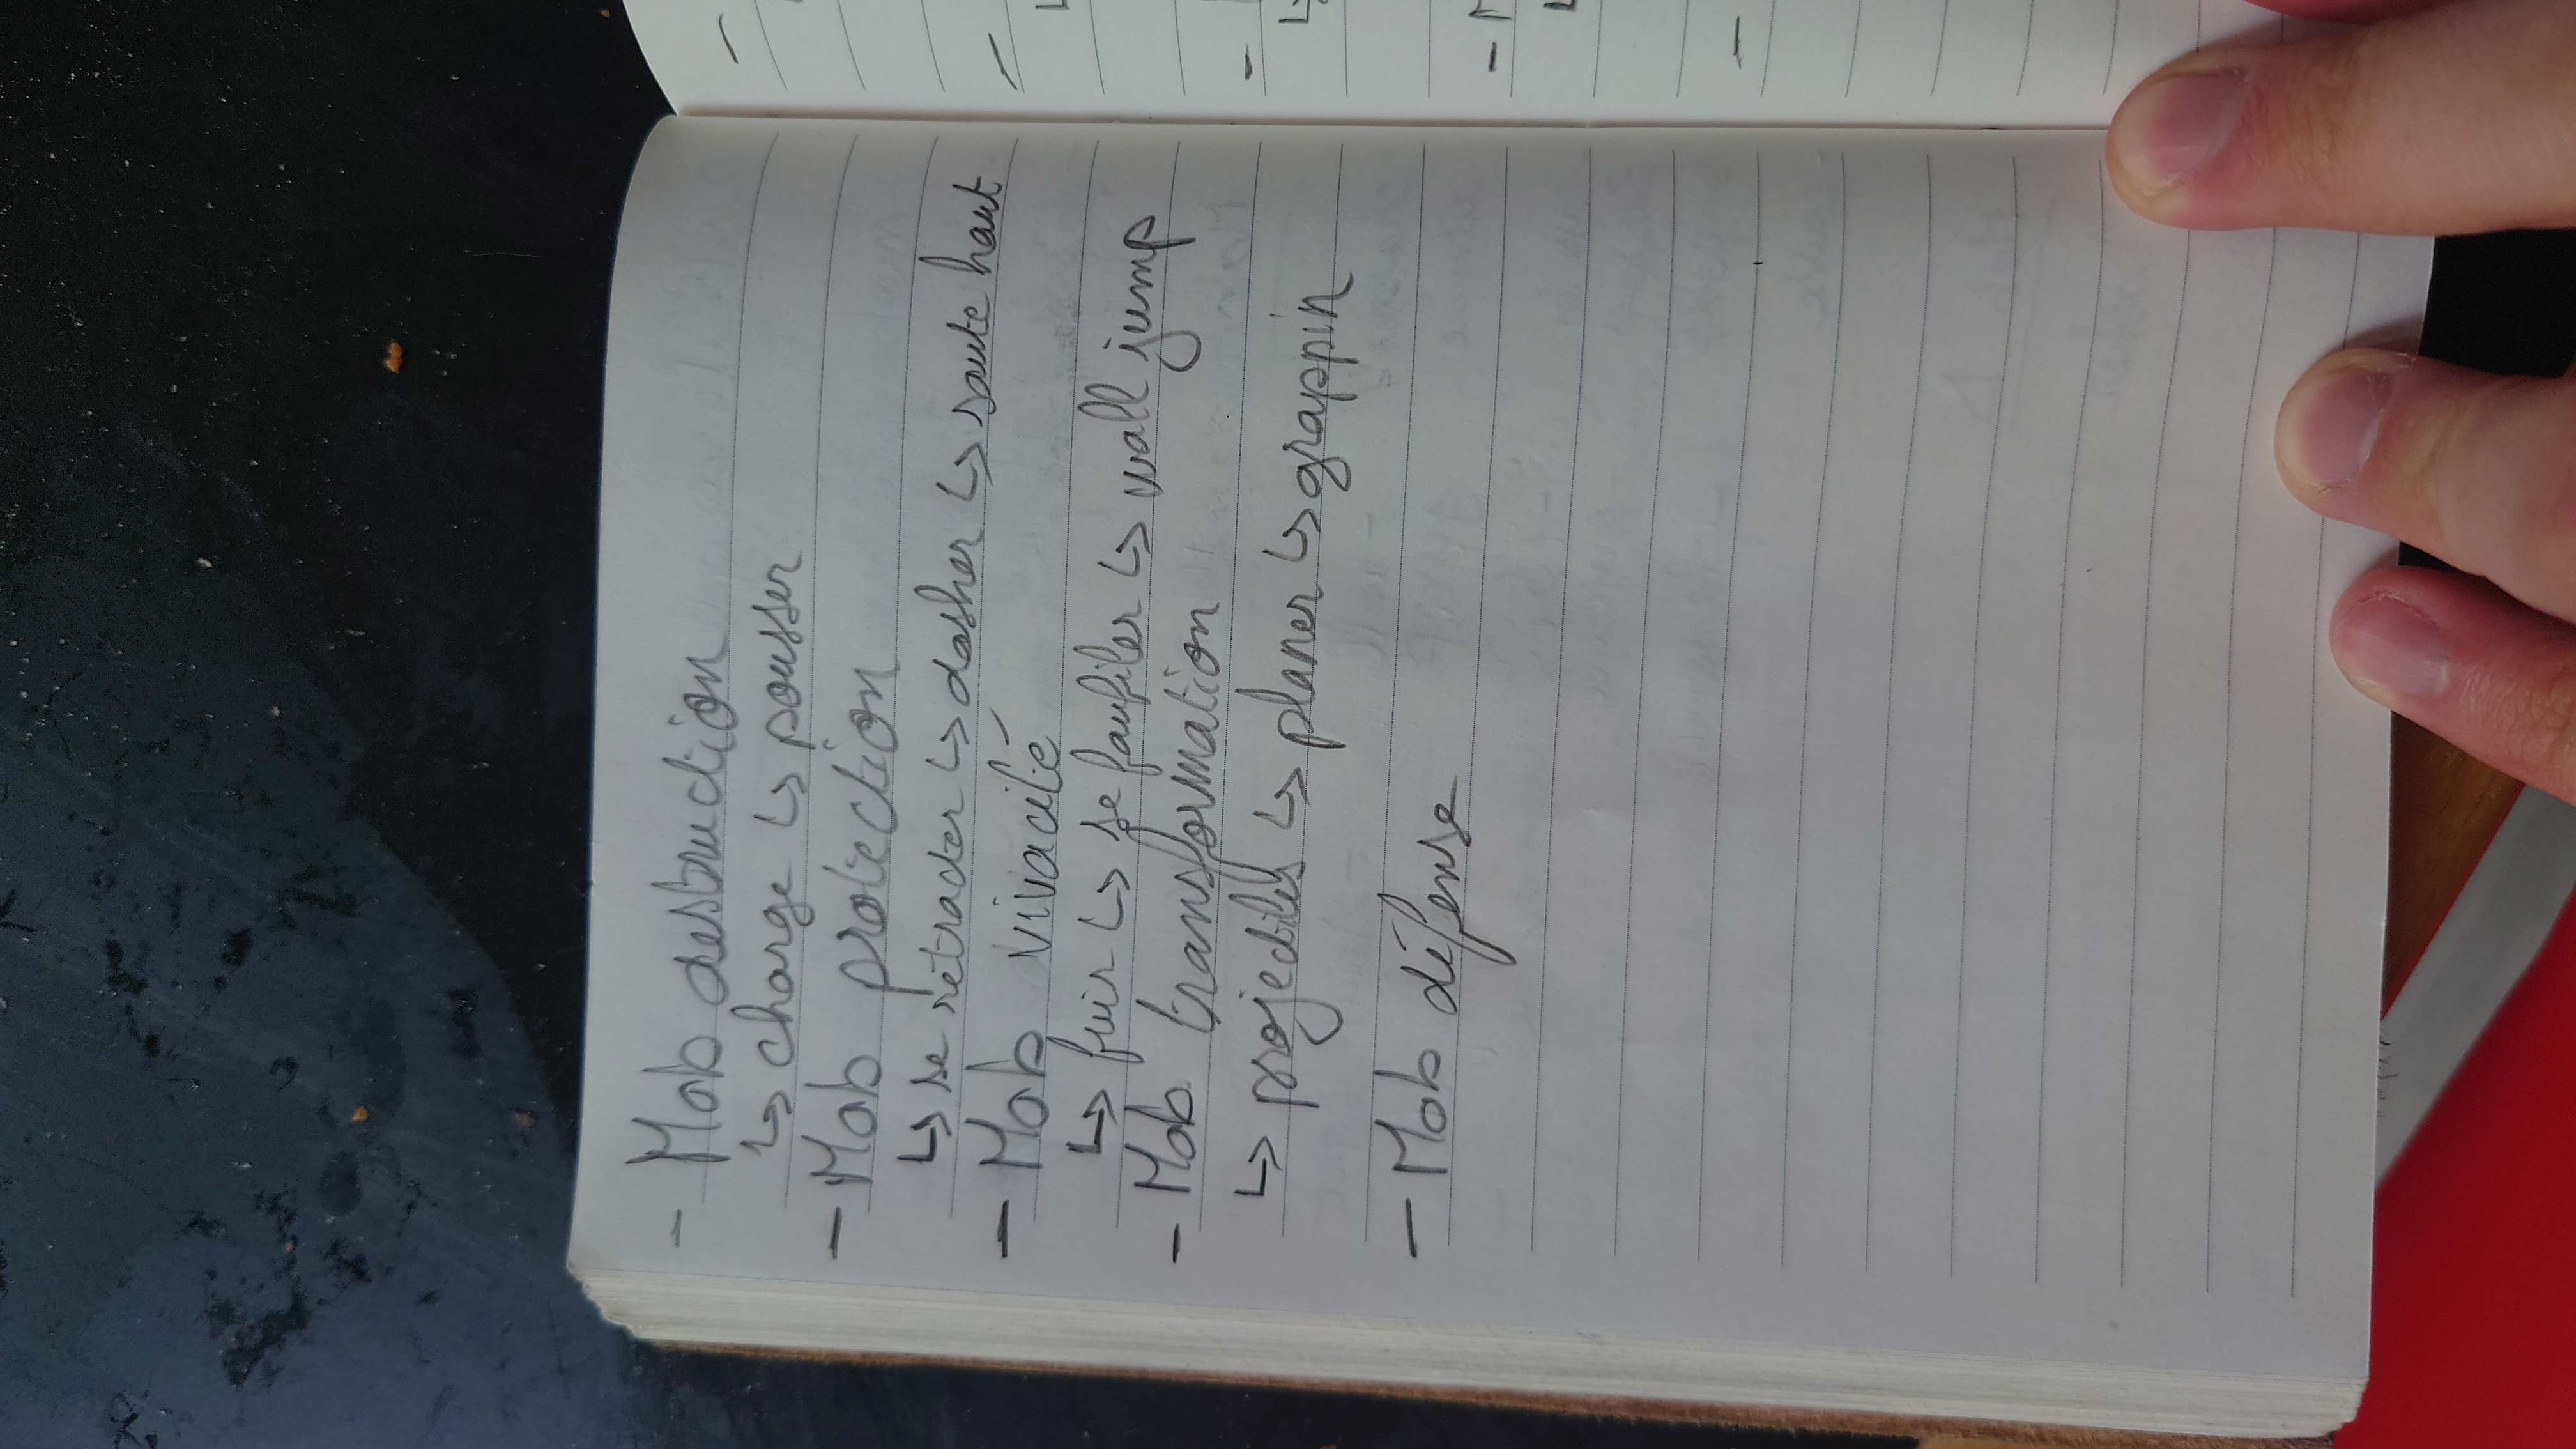 - Mob destruction
↳ charge ↳ pousser
- Mob protection
↳ se rétracter ↳ dasher ↳ saute haut
- Mob vivacité
↳ fuir ↳ se faufiler ↳ wall jump
- Mob transformation
↳ projectiles ↳ planer ↳ grappin
- Mob défense